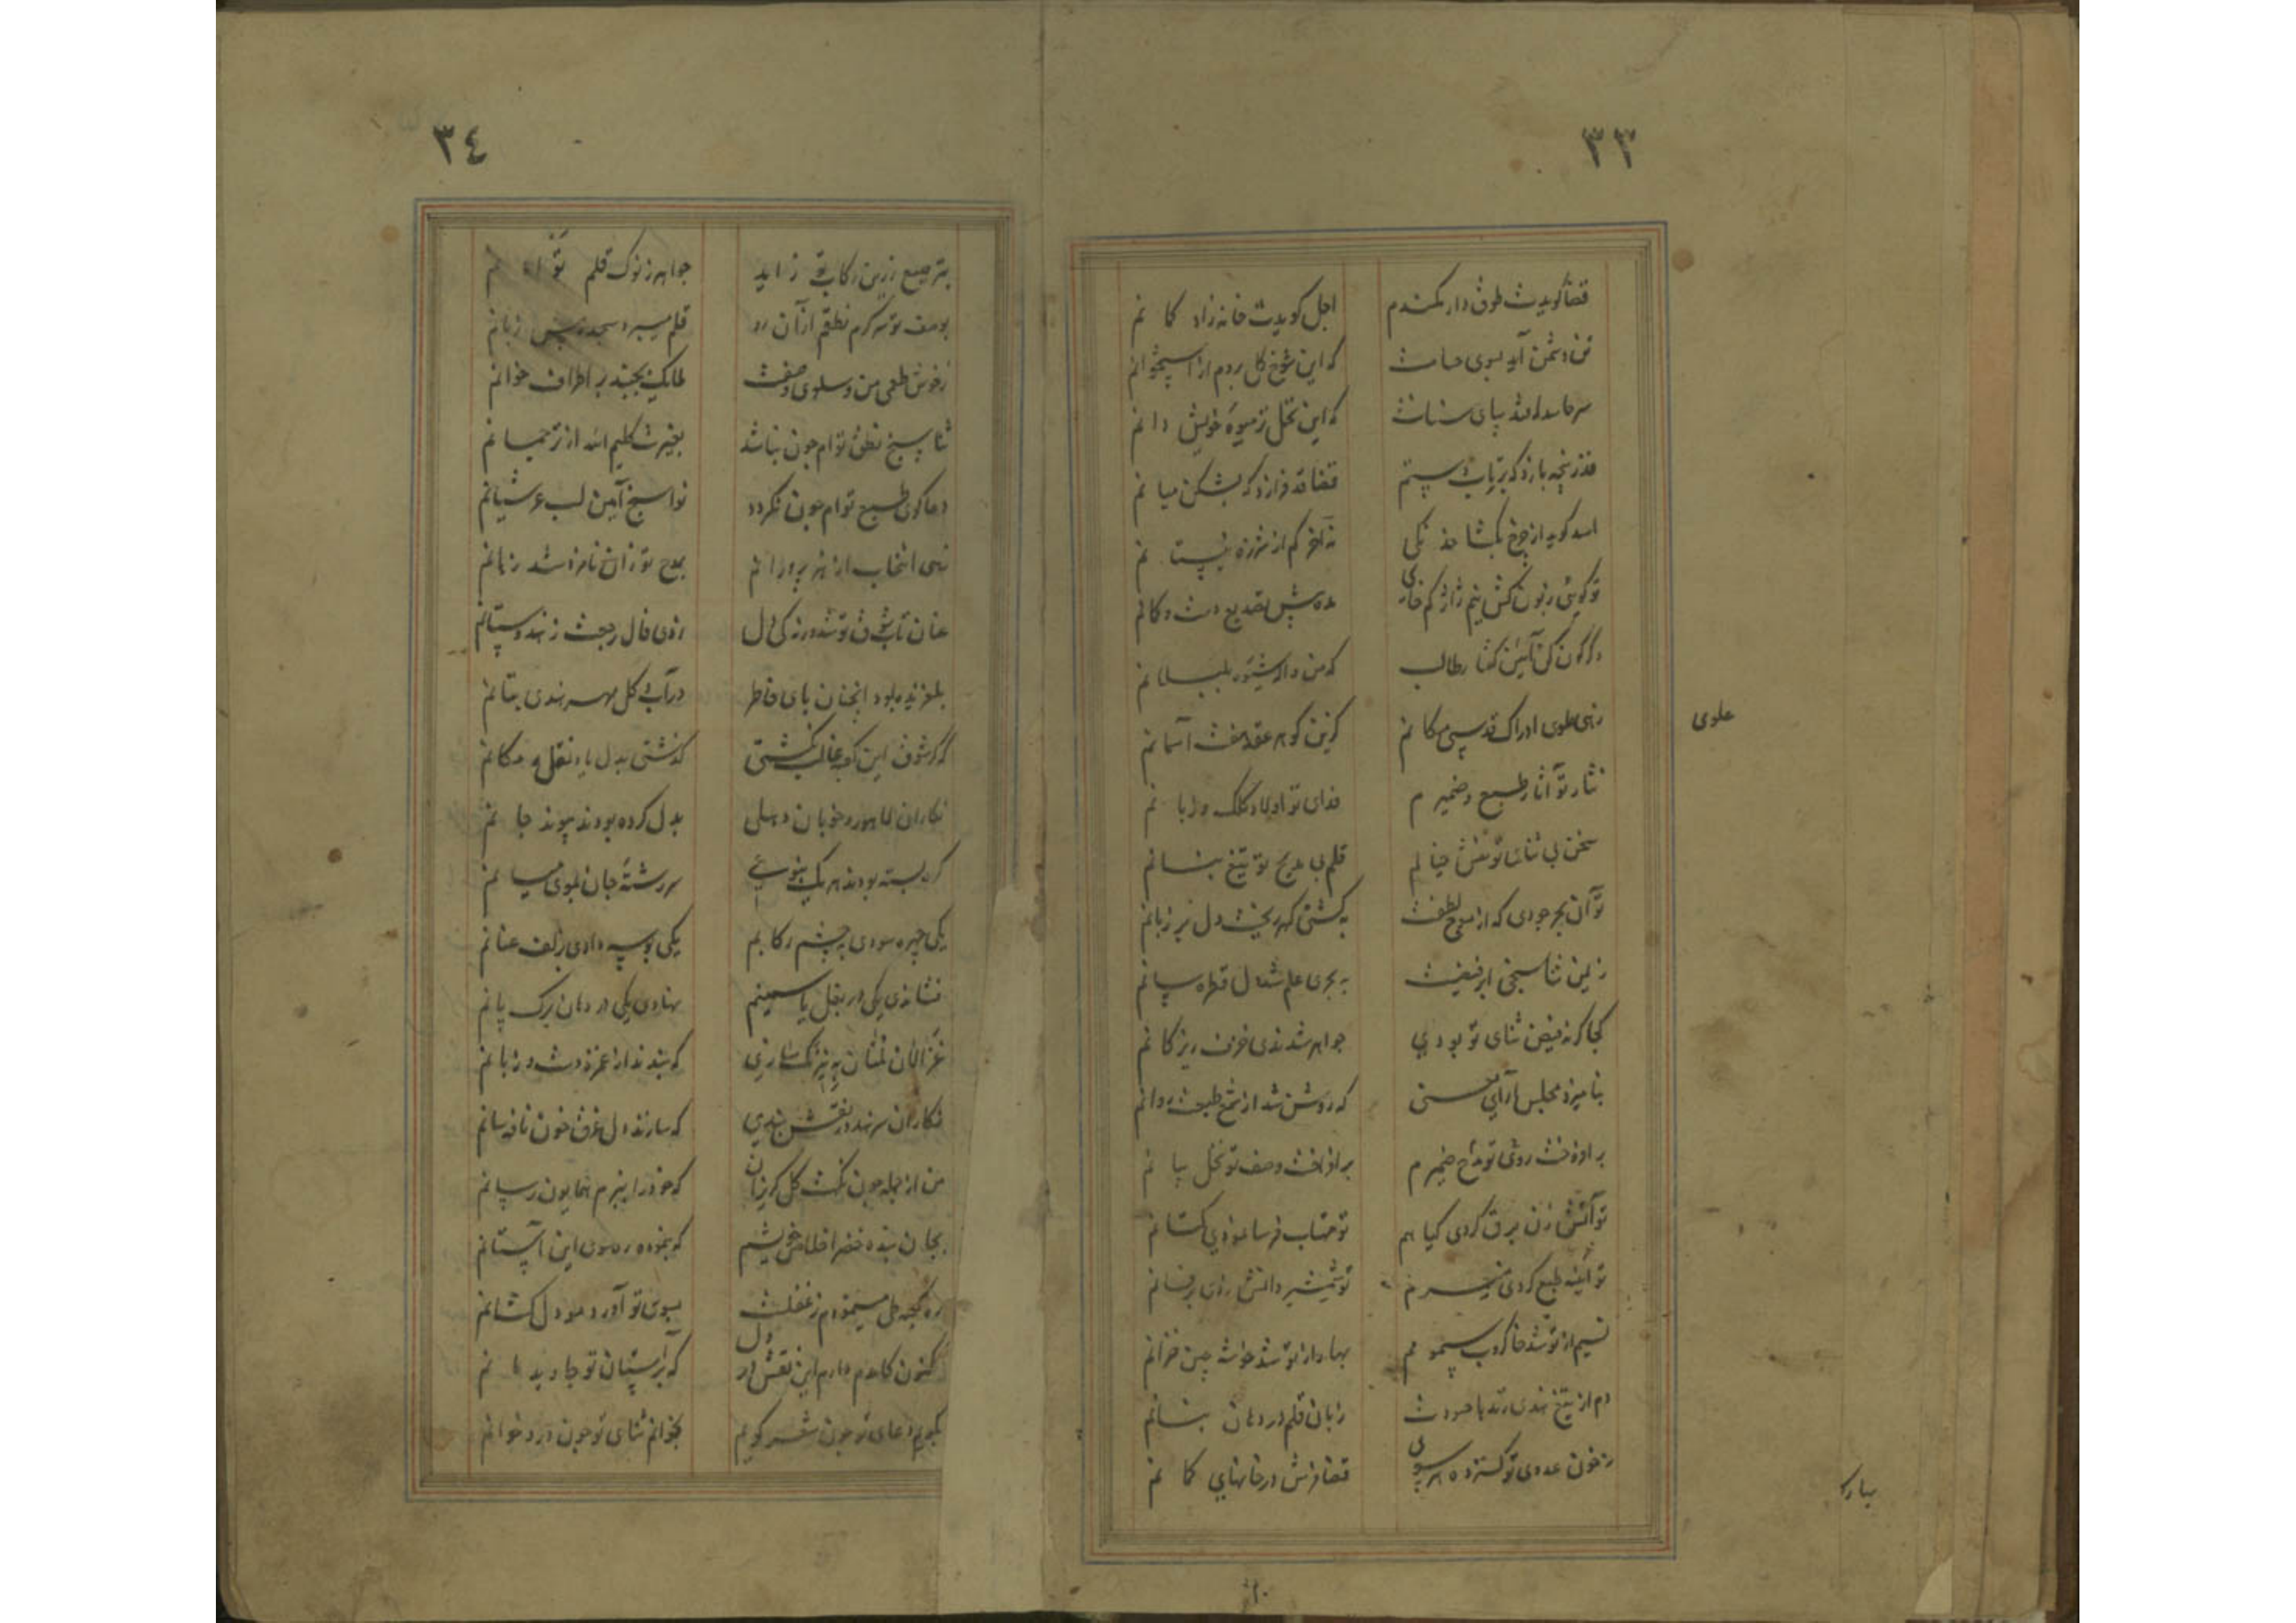 ٣٣
قضا گویدت طوق دار کمندم اجل گویدت خانه زاد کمانم
تن دشمن آید بسوی حسامت که این شوخ گل بردم از استخوانم
سر حاسد افتد پای سنانت که این نخل را میوه خویش دانم
قدر پنجه یازد که برتاب دستم قضا قد فرازد که بشکن میانم
اسد گوید از چرخ بگشا خدنگی نه آخر کم از شرزه نیستانم
تو گوئی زبون کش نیم ژاژ کم خای مده پیش تصدیع دست و کمانم
دگرگون کن آئین گفتار طالب که من داند شیوه بلبلانم
زهی علوی ادراک قدسی مکانم گزین گوهر عقد هفت آسمانم
علوی
نثار تو آثار طبع و ضمیرم فدای تو اولاد کلک و زبانم
سخن بی ثنای تو نقش خیالم قلم بی مدیح تو تیغ بنانم
تو آن بحر جودی که از موج لطفت به کشتی گهر ریخت دل بر زبانم
زمین ثنا سنجی ابر فیضت به بحری علم شد دل قطره سانم
کجا گر نه فیض ثنای تو بودی جواهر شدندی خزف ریز کانم
بنامیزد مجلس آرای حسنی که روشن شد از شمع طبعت روانم
برافروخت روی تو مداح ضمیرم برافراخت وصف تو نخل بیانم
تو آتش زن برق کردی گیاهم تو مهتاب فرسا نمودی کتانم
تو آئینه طبع کردی ضمیرم تو شمشیر دانش زدی بر فسانم
نسیم از تو شد خاکروب سمومم بهار از تو شد خوشه چین خزانم
دم از تیغ هندی زند با حسودت زبان قلم در دهان بنانم
ز خون عدوی تو گسترده هر سوی قضا فرش در خانهای کمانم
٣٤
بترصیع زرین رکاب تو زاید جواهر ز نوک قلم توامانم
بوصف تو سرگرم نطقم از آن رو قلم میبرد سجده پیش زبانم
ز خوش طعمی من و سلوی وصفت ملایک بجنبد بر اطراف خوانم
ثنا سنج نطق توام چون نباشد بغیرت کلیم الله از ترجمانم
دعاگوی طبع توام چون نگردد نواسنج آمین لب عرشیانم
زهی انتخاب از هنر پرورانم بمدح تو زان نامزد شد زبانم
عنان تاب شوق تو شد ورنه کی دل زدی فال رجعت ز هندوستانم
بلغزیده بود آنچنان پای خاطر در آب و گل مهر هندی بتانم
گر شوق این کعبه غالب نگشتی گذشتی بدل یاد نقل مکانم
نگاران لاهور و خوبان دهلی بدل کرده بودند پیوند جانم
گره بسته بودند هر یک بنوعی سررشته جان بموی میانم
یکی چهره سودی بچشم رکابم یکی بوسه دادی بزلف عنانم
نشاندی یکی در بغل یاسمینم نهادی یکی در دهان برگ پانم
غزالان ملتان به نیرنگ سازی که بندند از غمزه دست و زبانم
نگاران سرهند در نقش بندی که سازند دل غرق خون نافه سانم
من از جمله چون نکهت گل گریزان که خود را ببزم همایون رسانم
بجان بنده خضر اخلاص خویشم که بنموده ره سوی این آستانم
ره کعبه طی مینمودم ز غفلت بسوی تو آورد مو دل کشانم
کنون کامدم دارم این نقش در دل که بر آستان تو جاوید مانم
بگویم دعای تو چون شعر گویم بخوانم ثنای تو چون درد خوانم